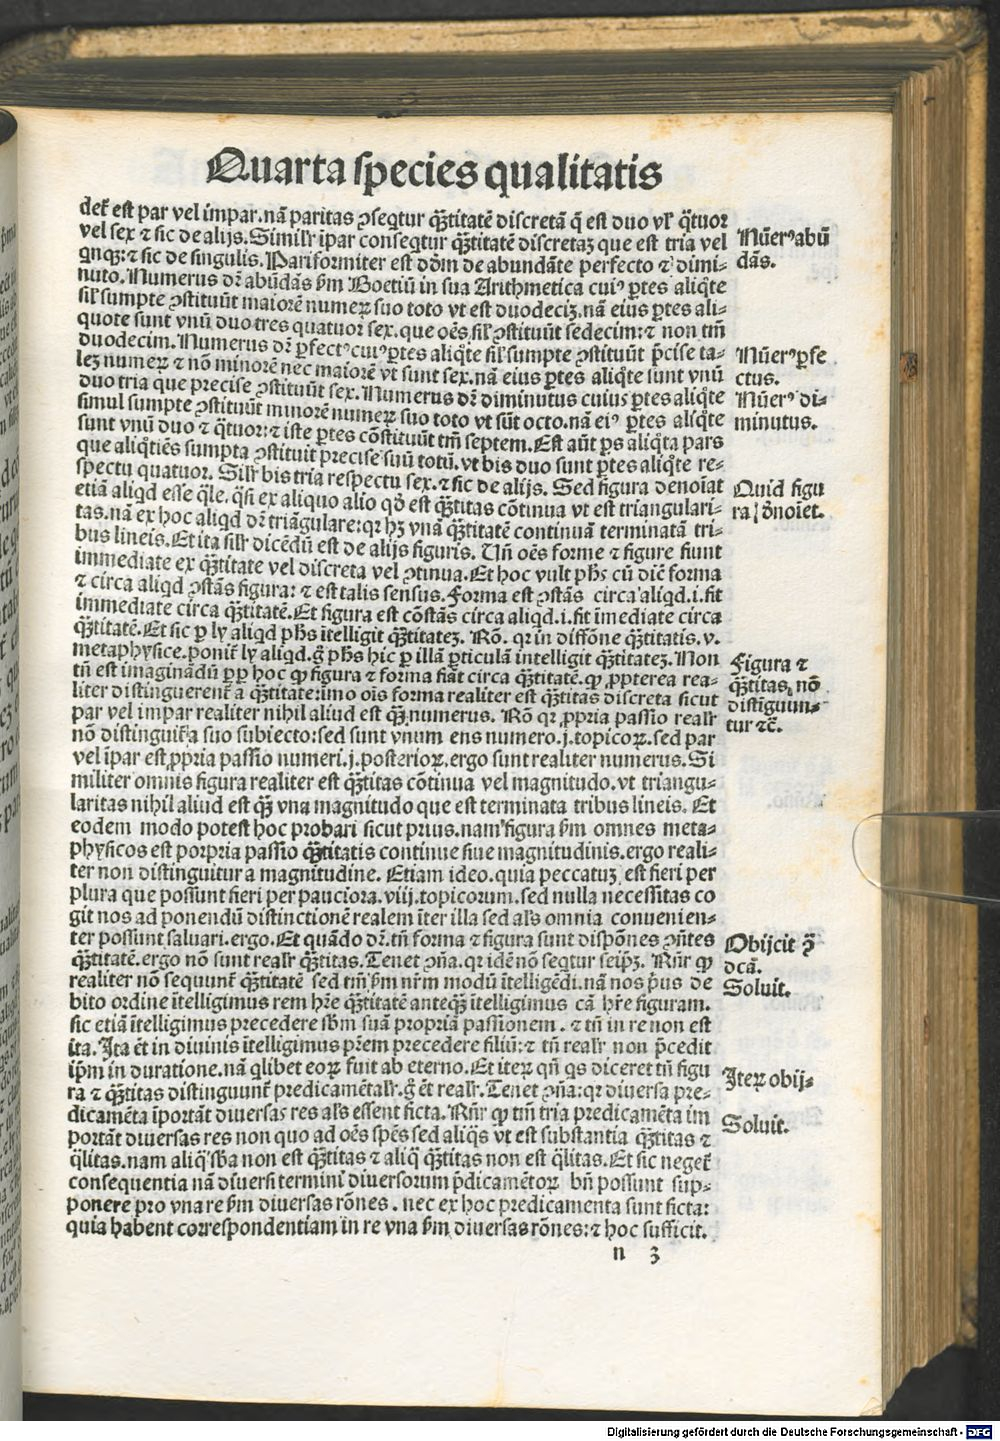 Quarta species qualitatis
det̃ est par vel impar. nã paritas ꝯseq̃tur q̃ȝtitatẽ discretã q̃ est duo vl' q̃tuor
vel sex ⁊ sic de alijs. Simil'r ĩpar conseq̃tur q̃ȝtitatẽ discretaȝ que est tria vel
qnqȝ: ⁊ sic de singulis. Pariformiter est dõm de abundãte perfecto ⁊ dimi-
nuto. Numerus dr̃ abũdãs ẜm Boetiũ in sua Arithmetica cuiꝰ ꝑtes aliq̃te
sil'sumpte ꝯstituũt maiorẽ numeꝝ suo toto vt est duodeciȝ. nã eius ꝑtes ali-
quote sunt vnũ duo tres quatuor sex. que oẽs sil' ꝯstituũt sedecim: ⁊ non tm̃
duodecim. Numerus dr̃ ꝑfectꝰ cuiꝰ ꝑtes aliq̃te sil' sumpte ꝯstituũt p̃cise ta-
leȝ numeꝝ ⁊ nõ minorẽ nec maiorẽ vt sunt sex. nã eius ꝑtes aliq̃te sunt vnũ
duo tria que precise ꝯstituũt sex. Numerus dr̃ diminutus cuius ꝑtes aliq̃te
simul sumpte ꝯstituũt minorẽ numeꝝ suo toto vt sũt octo. nã eiꝰ ꝑtes aliq̃te
sunt vnũ duo ⁊ q̃tuor: ⁊ iste ꝑtes cõstituũt tm̃ septem. Est aũt ꝑs aliq̃ta pars
que aliq̃tiẽs sumpta ꝯstituit precise suũ totũ. vt bis duo sunt ꝑtes aliq̃te re-
spectu quatuor. Sil'r bis tria respectu sex. ⁊ sic de alijs. Sed figura denoĩat
etiã aliqd esse q̃le. qñ ex aliquo alio qđ est q̃ȝtitas cõtinua vt est triangulari-
tas. nã ex hoc aliqd dr̃ triãgulare: qꝛ hȝ vnã q̃ȝtitatẽ continuã terminatã tri-
bus lineis. Et ita sil'r dicẽdũ est de alijs figuris. Uñ oẽs forme ⁊ figure fiunt
immediate ex q̃ȝtitate vel discreta vel ꝯtinua. Et hoc vult pħs cũ dič forma
⁊ circa aliqd ꝯstãs figura: ⁊ est talis sensus. Forma est ꝯstãs circa aliqd. i. fit
immediate circa q̃ȝtitatẽ. Et figura est cõstãs circa aliqd. i. fit ĩmediate circa
q̃ȝtitatẽ. Et sic ꝑ ly aliqd pħs ĩtelligit q̃ȝtitateȝ. Rõ. qꝛ in diffõne q̃ȝtitatis. v.
metaphysice. ponit̃ ly aliqd. g̃ pħs hic ꝑ illã ꝑticulã intelligit q̃ȝtitateȝ. Non
tñ est imaginãdũ ꝑꝑ hoc ꝙ figura ⁊ forma fiãt circa q̃ȝtitatẽ. ꝙ ꝓpterea rea-
liter distinguerent̃ a q̃ȝtitate: imo oĩs forma realiter est q̃ȝtitas discreta sicut
par vel impar realiter nihil aliud est q̃ȝ numerus. Rõ qꝛ ꝓpria passio real'r
nõ distinguit̃ a suo subiecto: sed sunt vnum ens numero. j. topicoꝝ. sed par
vel ĩpar est ꝓpria passio numeri. j. posterioꝝ. ergo sunt realiter numerus. Si
militer omnis figura realiter est q̃ȝtitas cõtinua vel magnitudo. vt triangu-
laritas nihil aliud est q̃ȝ vna magnitudo que est terminata tribus lineis. Et
eodem modo potest hoc probari sicut prius. nam figura ẜm omnes meta-
physicos est porpria passio q̃ȝtitatis continue siue magnitudinis. ergo reali-
ter non distinguitur a magnitudine. Etiam ideo. quia peccatuȝ est fieri per
plura que possunt fieri per pauciora. viij. topicorum. sed nulla necessitas co
git nos ad ponendũ distinctionẽ realem ĩter illa sed al's omnia conuenien-
ter possunt saluari. ergo. Et quãdo dr̃. tñ forma ⁊ figura sunt dispõnes ꝯñtes
q̃ȝtitatẽ. ergo nõ sunt real'r q̃ȝtitas. Tenet ꝯña. qꝛ idẽ nõ seq̃tur seip̃ȝ. Rñr ꝙ
realiter nõ sequunt̃ q̃ȝtitatẽ sed tm̃ ẜm nr̃m modũ ĩtelligẽdi. nã nos p̃us de
bito ordine ĩtelligimus rem hr̃e q̃ȝtitatẽ anteq̃ȝ ĩtelligimus eã hr̃e figuram.
sic etiã ĩtelligimus precedere sb̃m suã propriã passionem. ⁊ tñ in re non est
ita. Ita ẽt in diuinis ĩtelligimus pr̃em precedere filiũ: ⁊ tñ real'r non p̃cedit
ip̃m in duratione. nã q̃libet eoꝝ fuit ab eterno. Et iteꝝ qñ q̃s diceret tñ figu
ra ⁊ q̃ȝtitas distinguunt̃ predicamẽtal'r. g̃ ẽt real'r. Tenet ꝯña: qꝛ diuersa pre-
dicamẽta ĩportãt diuersas res al's essent ficta. Rñr ꝙ tm̃ tria predicamẽta im
portãt diuersas res non quo ad oẽs sp̃es sed aliq̃s vt est substantia q̃ȝtitas ⁊
q̃litas. nam aliq̃ sb̃a non est q̃ȝtitas ⁊ aliq̃ q̃ȝtitas non est q̃litas. Et sic neget̃
consequentia nã diuersi termini diuersorum p̃dicamẽtoꝝ bñ possunt sup-
ponere pro vna re ẜm diuersas rõnes. nec ex hoc predicamenta sunt ficta:
quia habent correspondentiam in re vna ẜm diuersas rõnes: ⁊ hoc sufficit.
n 3
Nũerꝰ abũ
dãs.
Nũerꝰ ꝑfe
ctus.
Nũerꝰ di-
minutus.
Quid figu
ra denoĩet.
Figura ⁊
q̃ȝtitas nõ
distinguun-
tur ⁊č.
Obijcit ꝯ̃
dcã.
Soluit.
Iteꝝ obij-
Soluit.
Digitalisierung gefördert durch die Deutsche Forschungsgemeinschaft - DFG